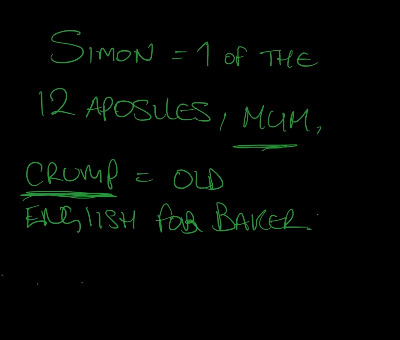 SIMON = 1 OF THE
12 APOSULES, MUM,
CRUMP = OLD
ENGLISH FOR BAKER.